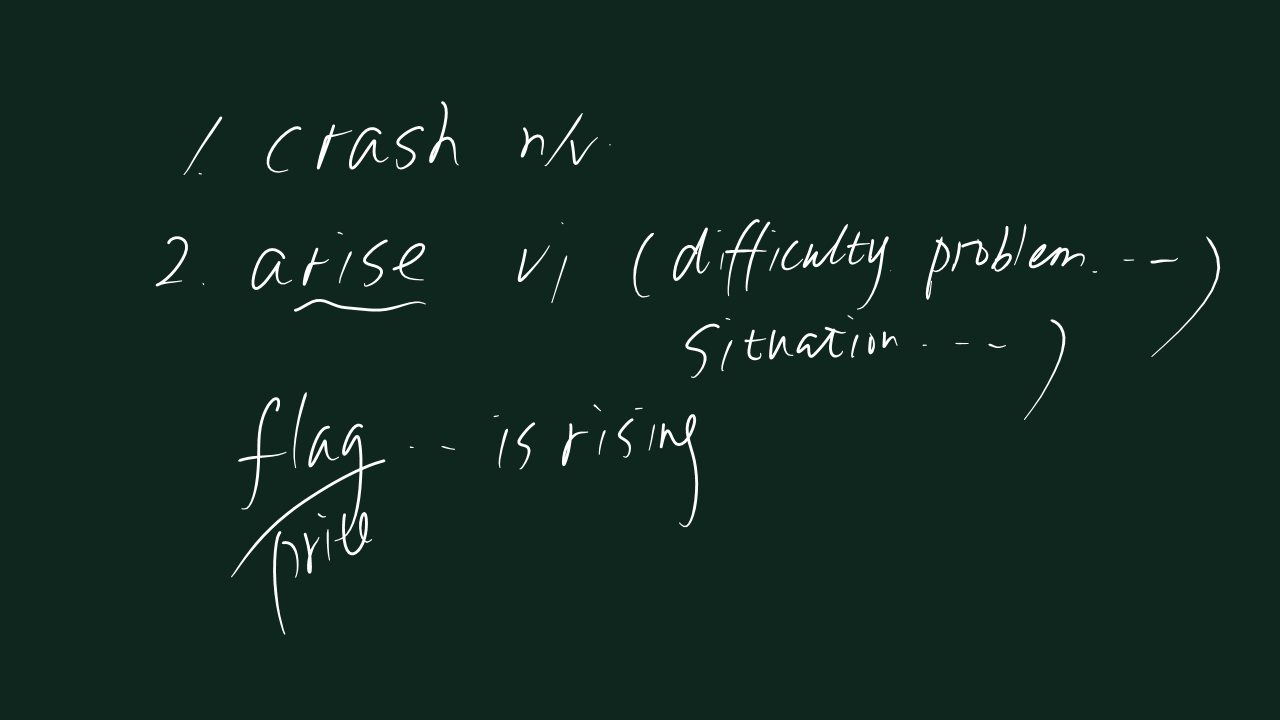 1. crash n/v.
2. arise vi (difficulty problem. ---)
situation ----)
flag --- is rising
price